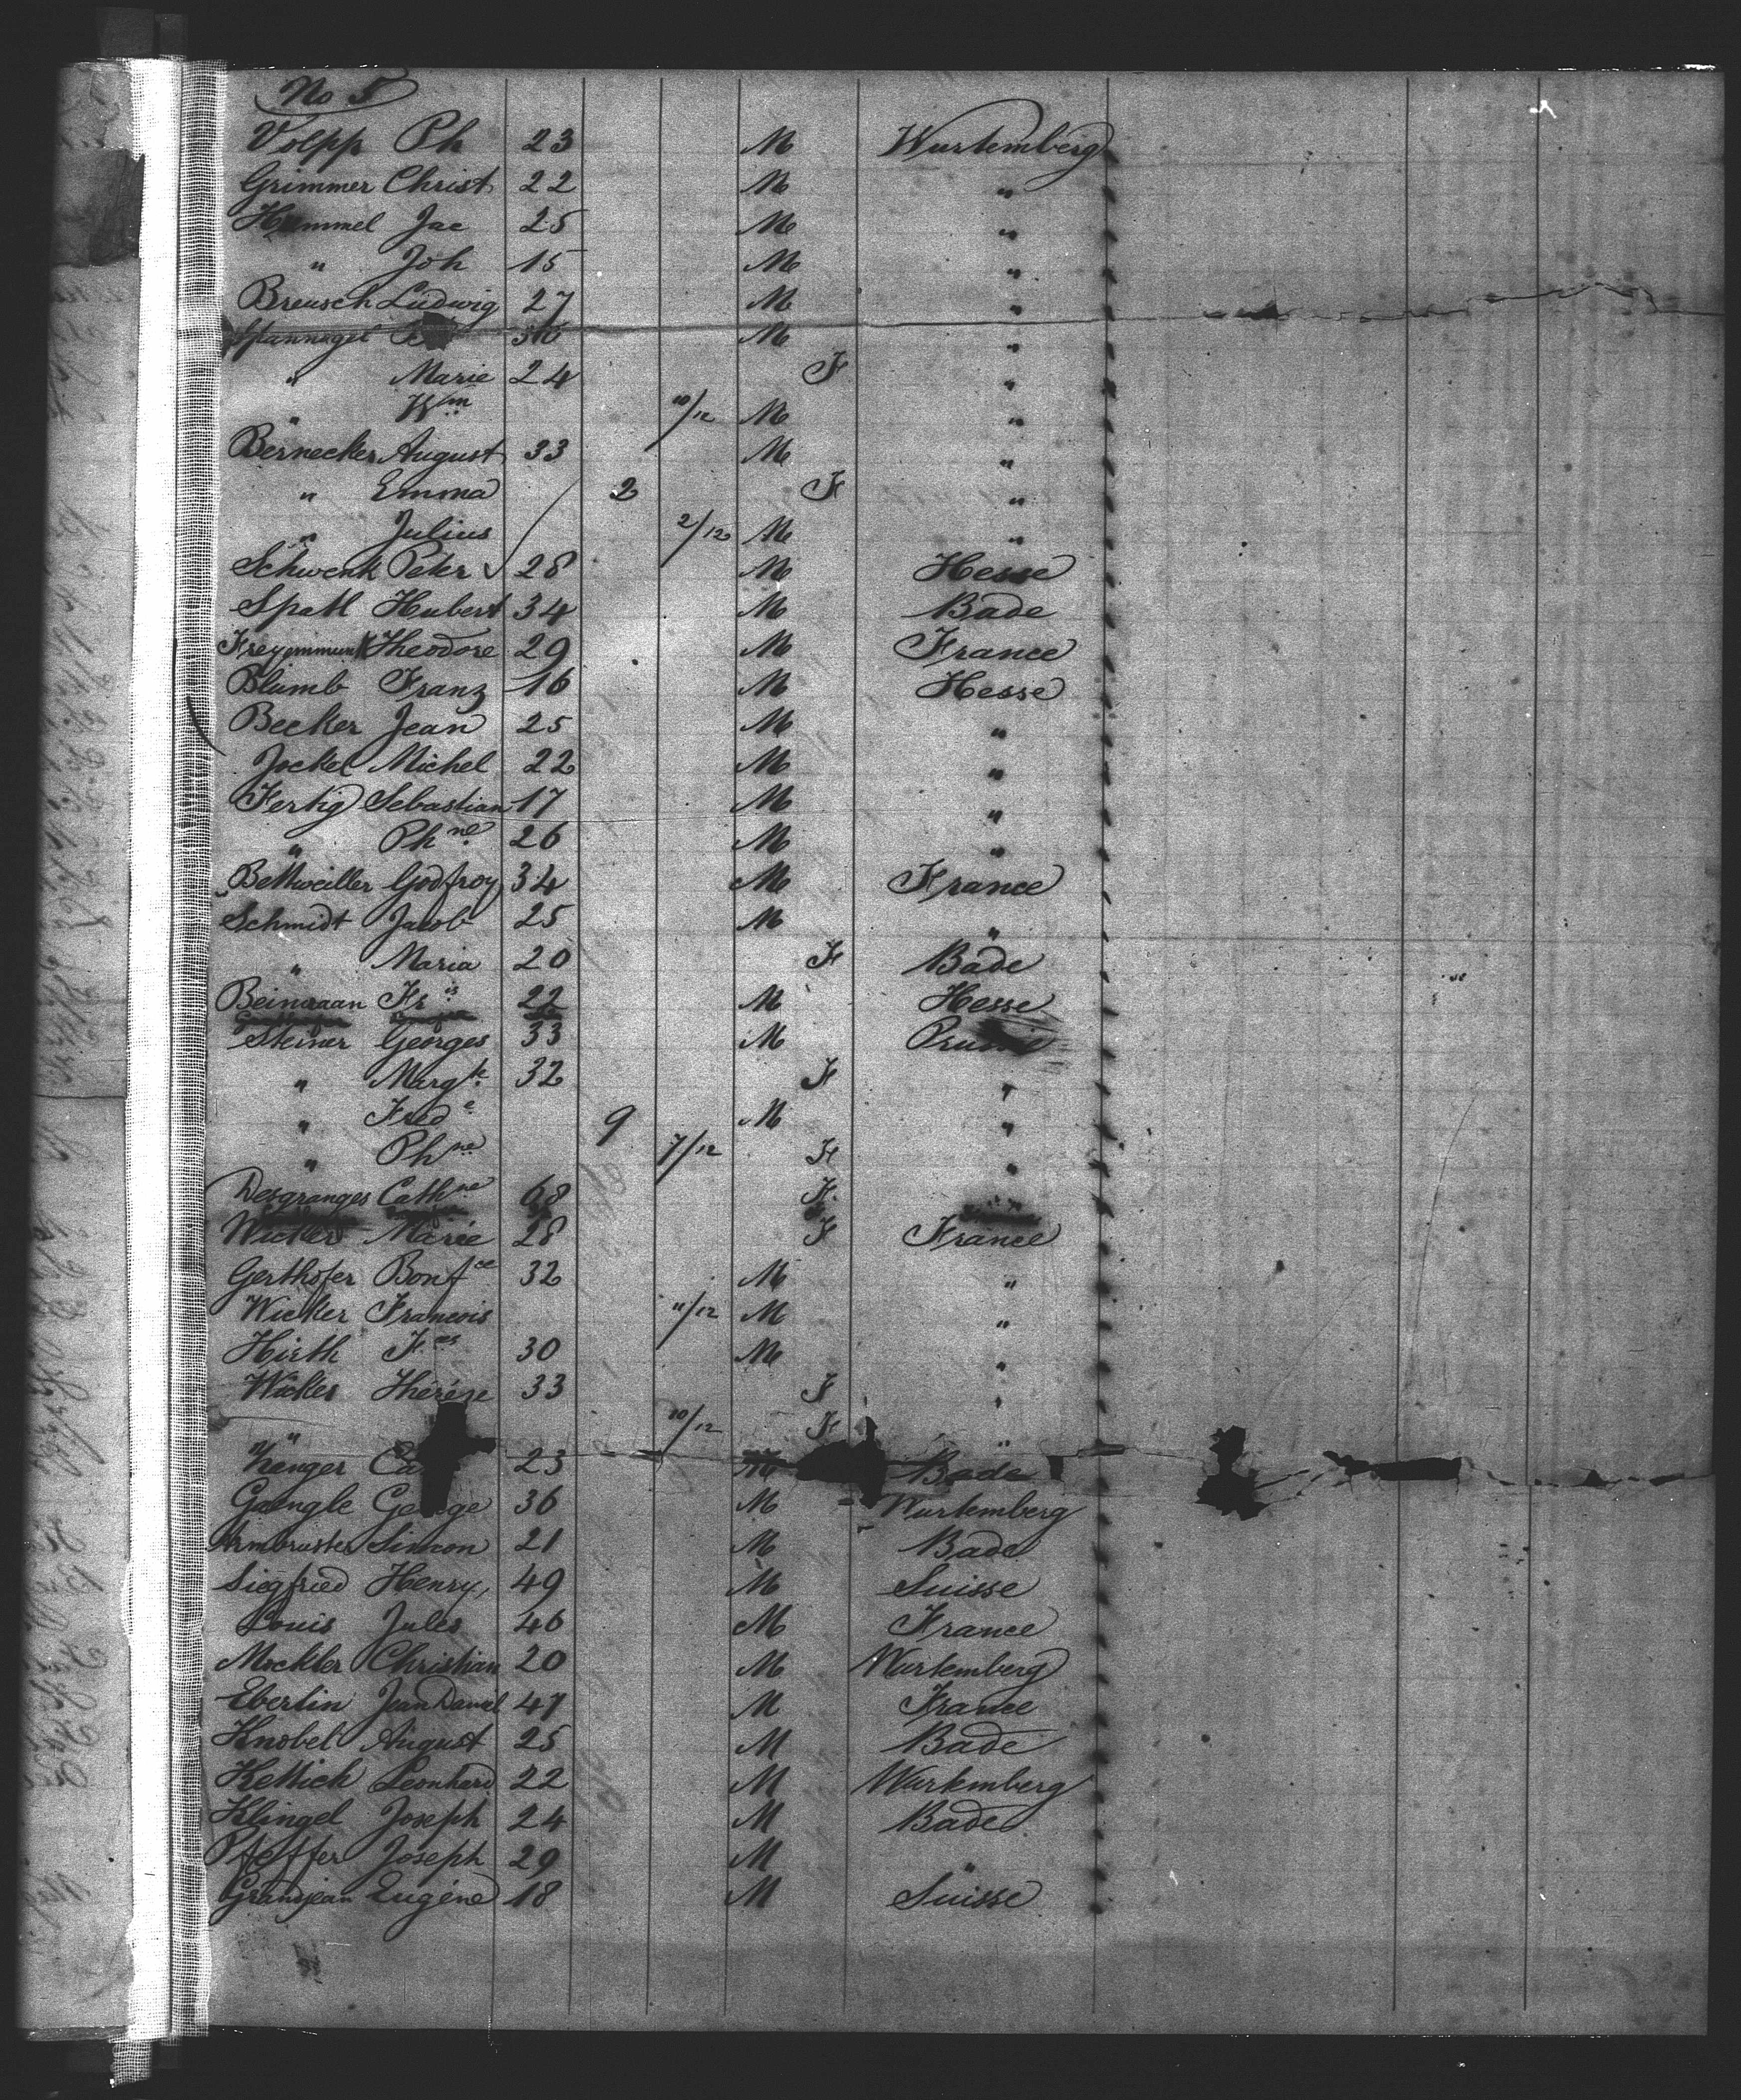 No 5
Volpp Ph 23 M Wurtemberg
Grimmer Christ 22 M "
Hummel Jac 25 M "
" Joh 15 M "
Breusch Ludwig 27 M "
Spannagel 36 M "
" Marie 24 F "
" Wm 10/12 M "
Bernecker August 33 M "
" Emma 2 F "
" Julius 2/12 M "
Schwenk Peter 28 M Hesse
Spatt Hubert 34 M Bade
Theodore 29 M France
Blumb Franz 16 M Hesse
Becker Jean 25 M "
Jockel Michel 22 M "
Fertig Sebastian 17 M "
" Phne 26 M "
Bettweiller Godfroy 34 M France
Schmidt Jacob 25 M "
" Maria 20 F Bade
Frs 22 M Hesse
Steiner Georges 33 M Prusse
" Margte 32 F "
" Frede 9 M "
" Phne 7/12 F "
Desgranges Cathne 68 F.
Wicker Marie 28 F France
Gerthofer Bonfce 32 M "
Wicker Francois 11/12 M "
Hirth Fcos 30 M "
Wicker Thérése 33 F "
" 10/12 F "
Kenger Ca 23 M Bade
Gaengle George 36 M Wurtemberg
Armbruster Simon 21 M Bade
Siegfried Henry 49 M Suisse
Louis Jules 46 M France
Mockler Christian 20 M Wurtemberg
Eberlin Jean Daniel 47 M France
Knobel August 25 M Bade
Kettich Leonhard 22 M Wurtemberg
Klingel Joseph 24 M Bade
Pfeffer Joseph 29 M "
Grandjean Eugéne 18 M Suisse